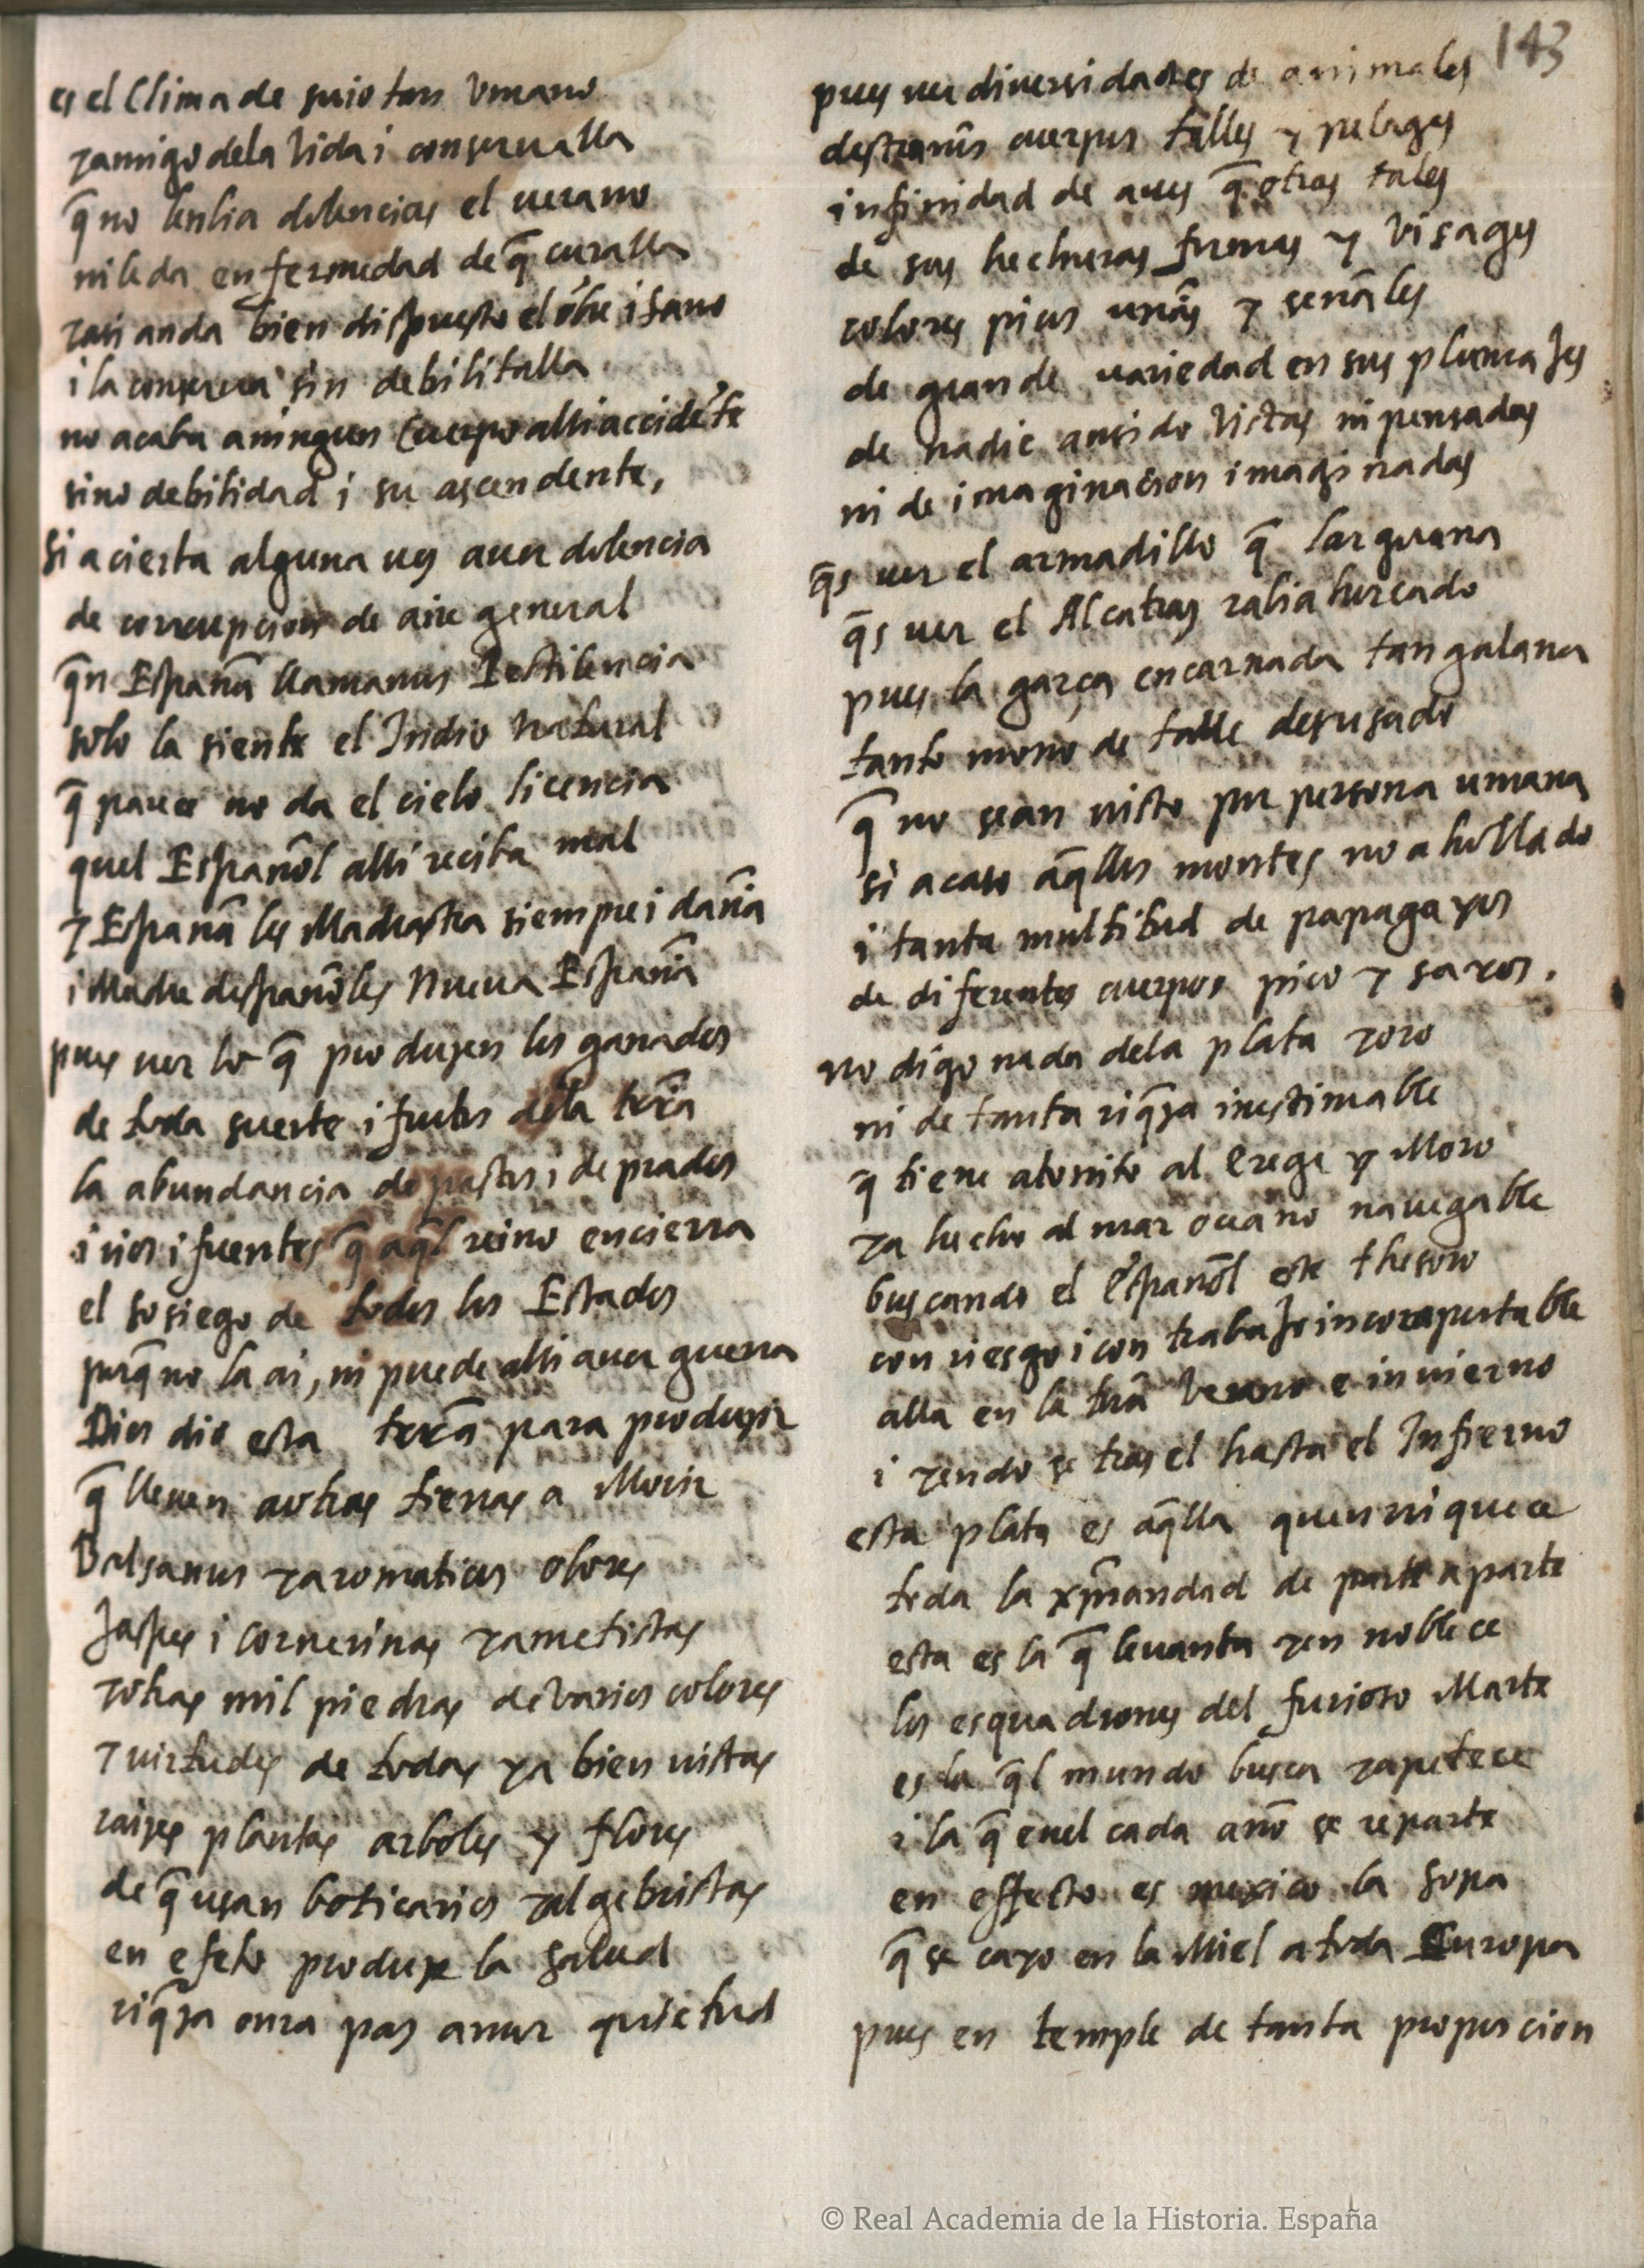 143
es el Clima de suio tan Vmano
y amigo dela Vida i conserualla
q̃ no lenbia dolencias el uerano
ni le da enfermedad de q̃ curalla
y asi anda bien dispuesto el õbre i sano
i la conserua sin debilitalla
no acaba aningun Cuerpo alli accidẽte
sino debilidad i su ascendente,
Si acierta alguna ues auer dolencia
de corrupcion de aire general
q̃n España llamamos Pestilencia
solo la siente el Indio Natural
q̃ parece no da el cielo licencia
quel Español alli reciba mal
y España les Madrastra siempre i daña
i Madre despañoles Nueua España
pues uer lo q̃ produzen los ganados
de toda suerte i frutos dela trr̃a
la abundancia de pastos i de prados
i rios i fuentes q̃ aq̃l reino encierra
el sosiego de todos los Estados
porq̃ no la ai, ni puede alli auer guerra
Dios dio esta terr̃a para produzir
q̃ lleuen aotras tierras a Morir
Balsamos y aromaticos olores
Jaspes i Cornerinas y ametistas
y otras mil piedras de Varios colores
y uirtudes de todas ya bien uistas
raizes plantas arboles y flores
de q̃ usan boticarios y algebristas
en efeto produze la salud
riq̃za onra paz amor quietud
pues uer diuersidades de animales
destraños cuerpos talles y pelages
infinidad de aues q̃ otras tales
de sus hechuras formas y Visages
colores picos uñas y señales
de grande uariedad en sus plumaJes
de nadie ansido Vistas ni pensadas
ni de imaginacion imaginadas
q̃s uer el armadillo q̃ laiguana
q̃s uer el Alcatras rabiahurcado
pues la garça encarnada tan galana
tanto mono de talle desusado
q̃ no sean uisto por persona umana
si acaso aq̃llos montes no a hollado
i tanta multitud de papagayos
de diferentes cuerpos pico y sayos.
no digo nada dela plata y oro
ni de tanta riq̃za inestimable
q̃ tiene atonito al Erege y Moro
ya hecho al mar oceano nauegable
buscando el Español este thesoro
con riesgo i con trabaJo incomportable
alla en la trr̃a Verano e inuierno
i yendo se tras el hasta el Infierno
esta plata es aq̃lla quenriquece
toda la xp̃iandad de parte aparte
esta es la q̃ leuanta y en noblece
los esquadrones del furioso Marte
es la q̃l mundo busca y apetece
i la q̃ enel cada año se reparte
en effecto es mexico la sopa
q̃ se cayo en la Miel a toda Europa
pues en temple de tanta proporcion
© Real Academia de la Historia. España